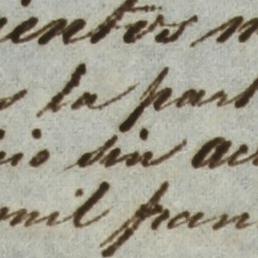 ientos m
s la part
cio sin ac
mil fran